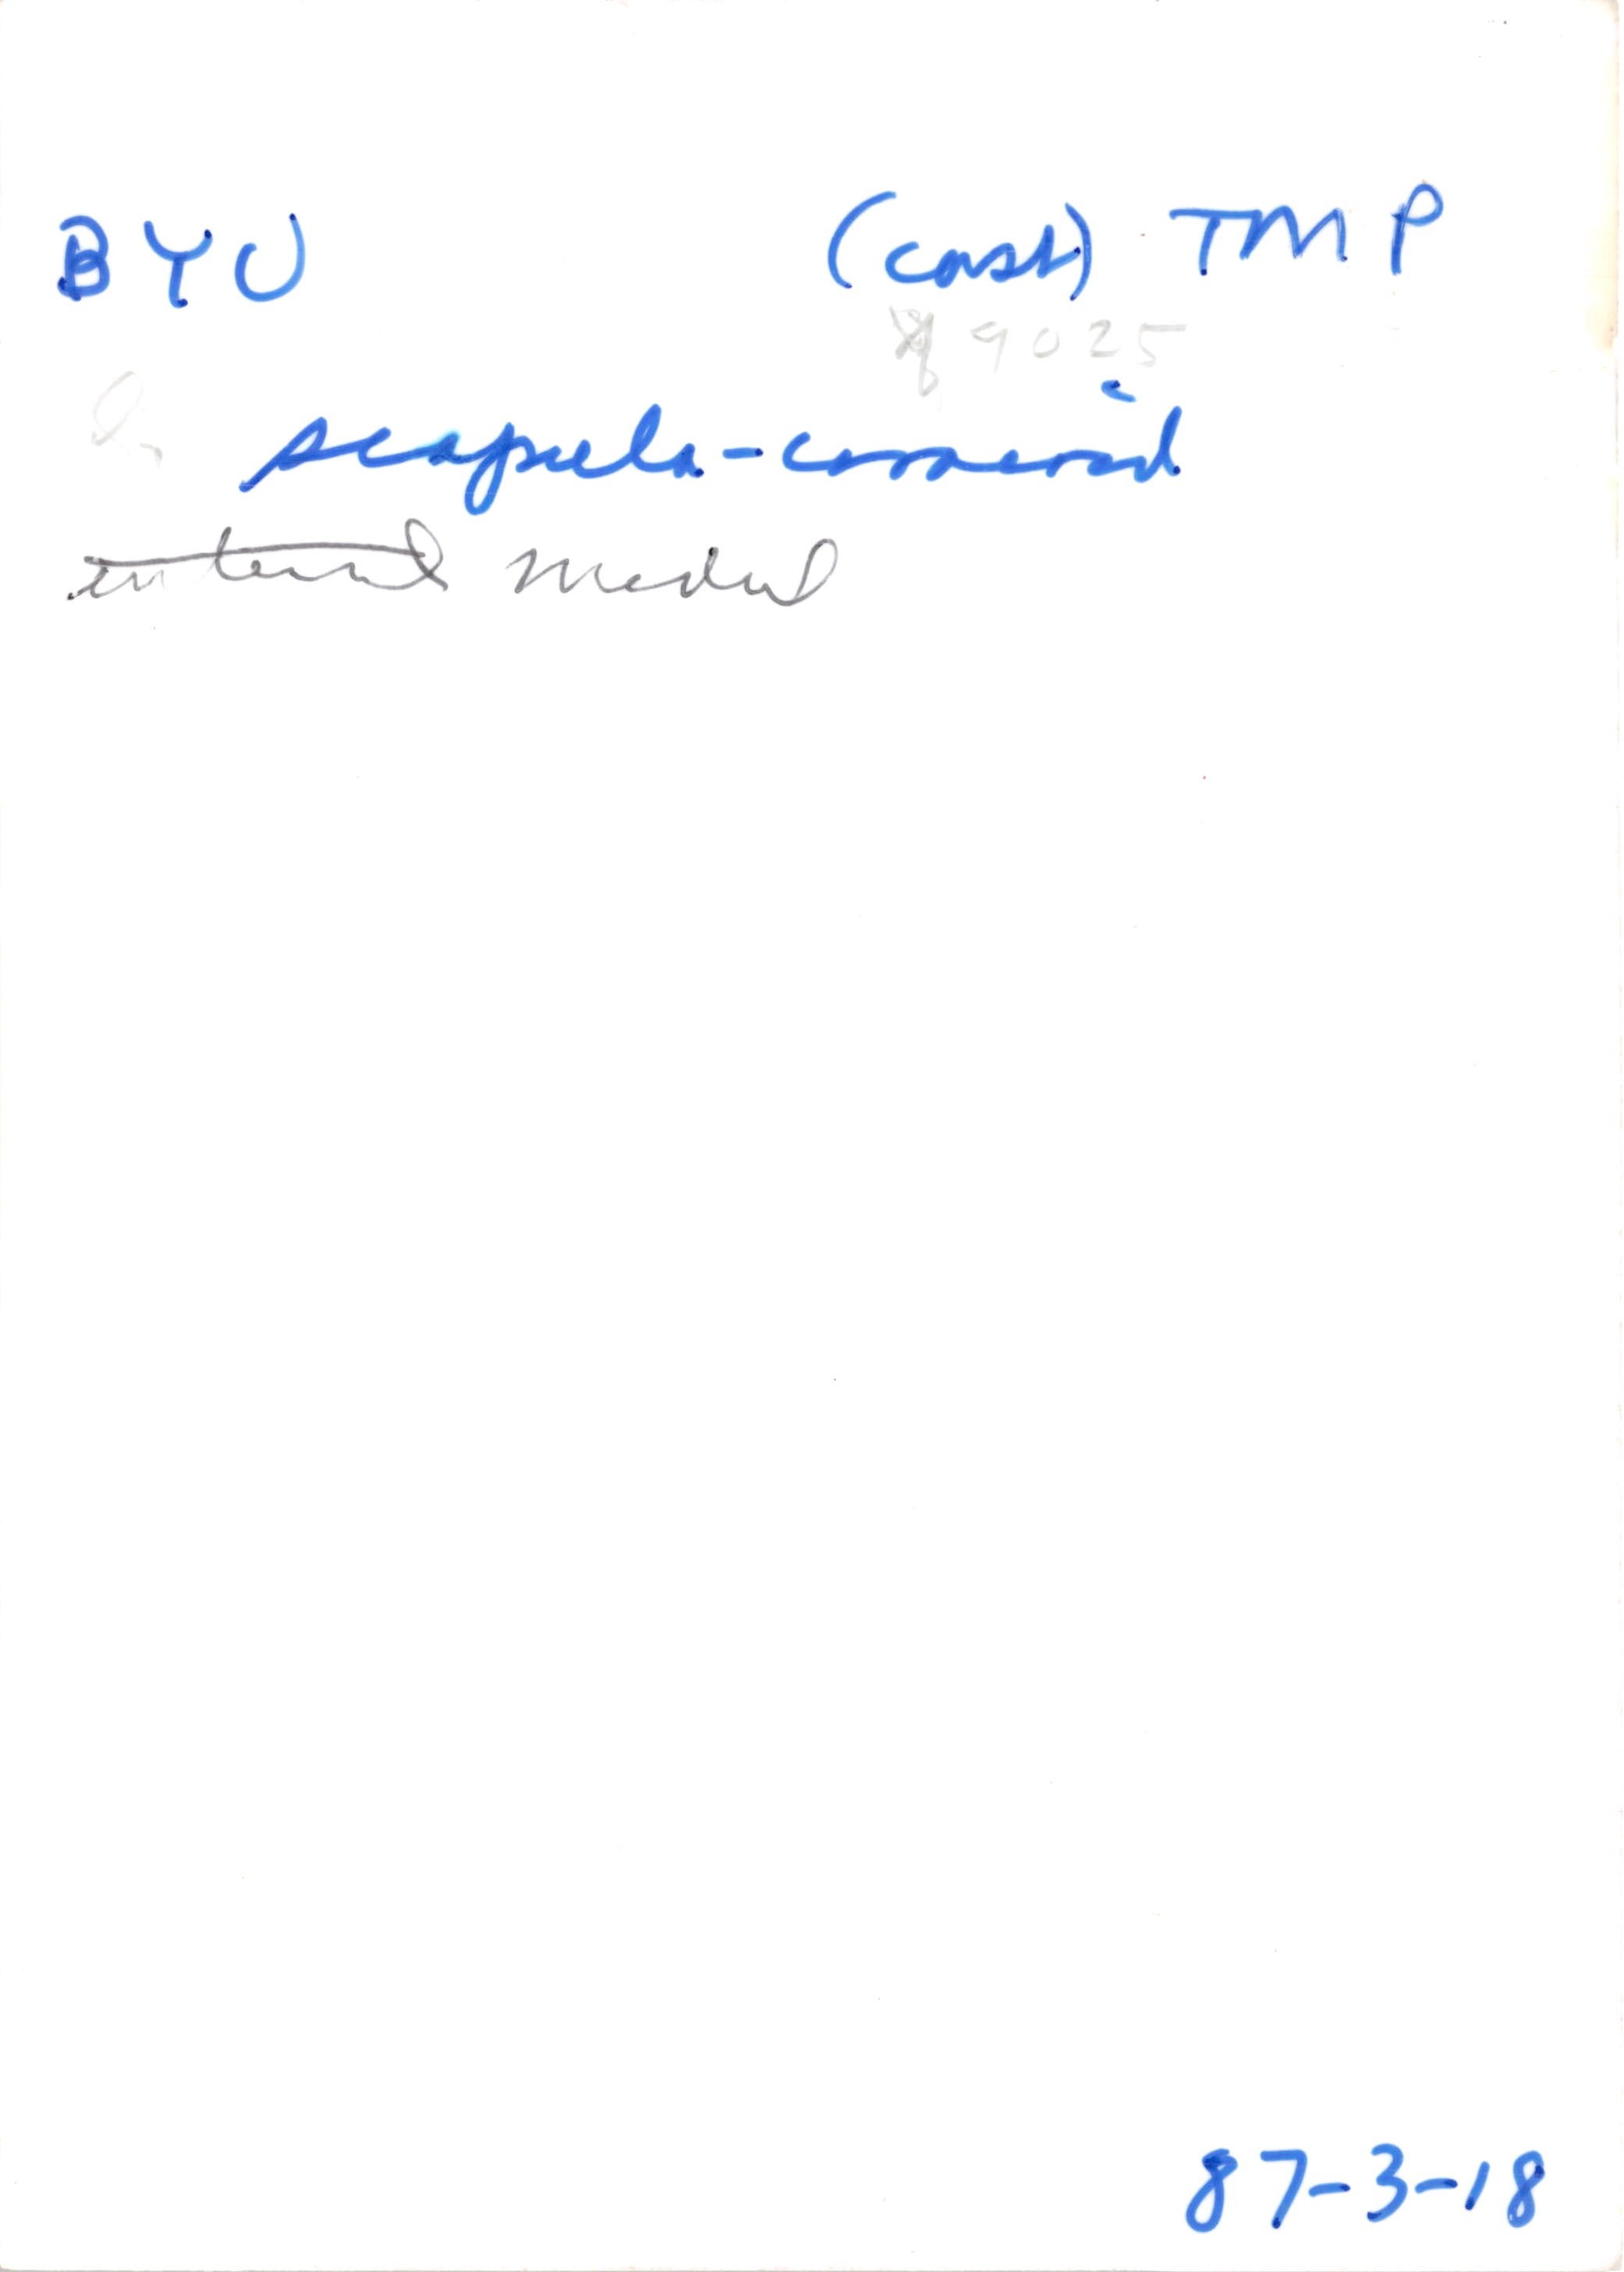 BYU (cast) TMP
9025
scapula-coracoid
external medial
87-3-18